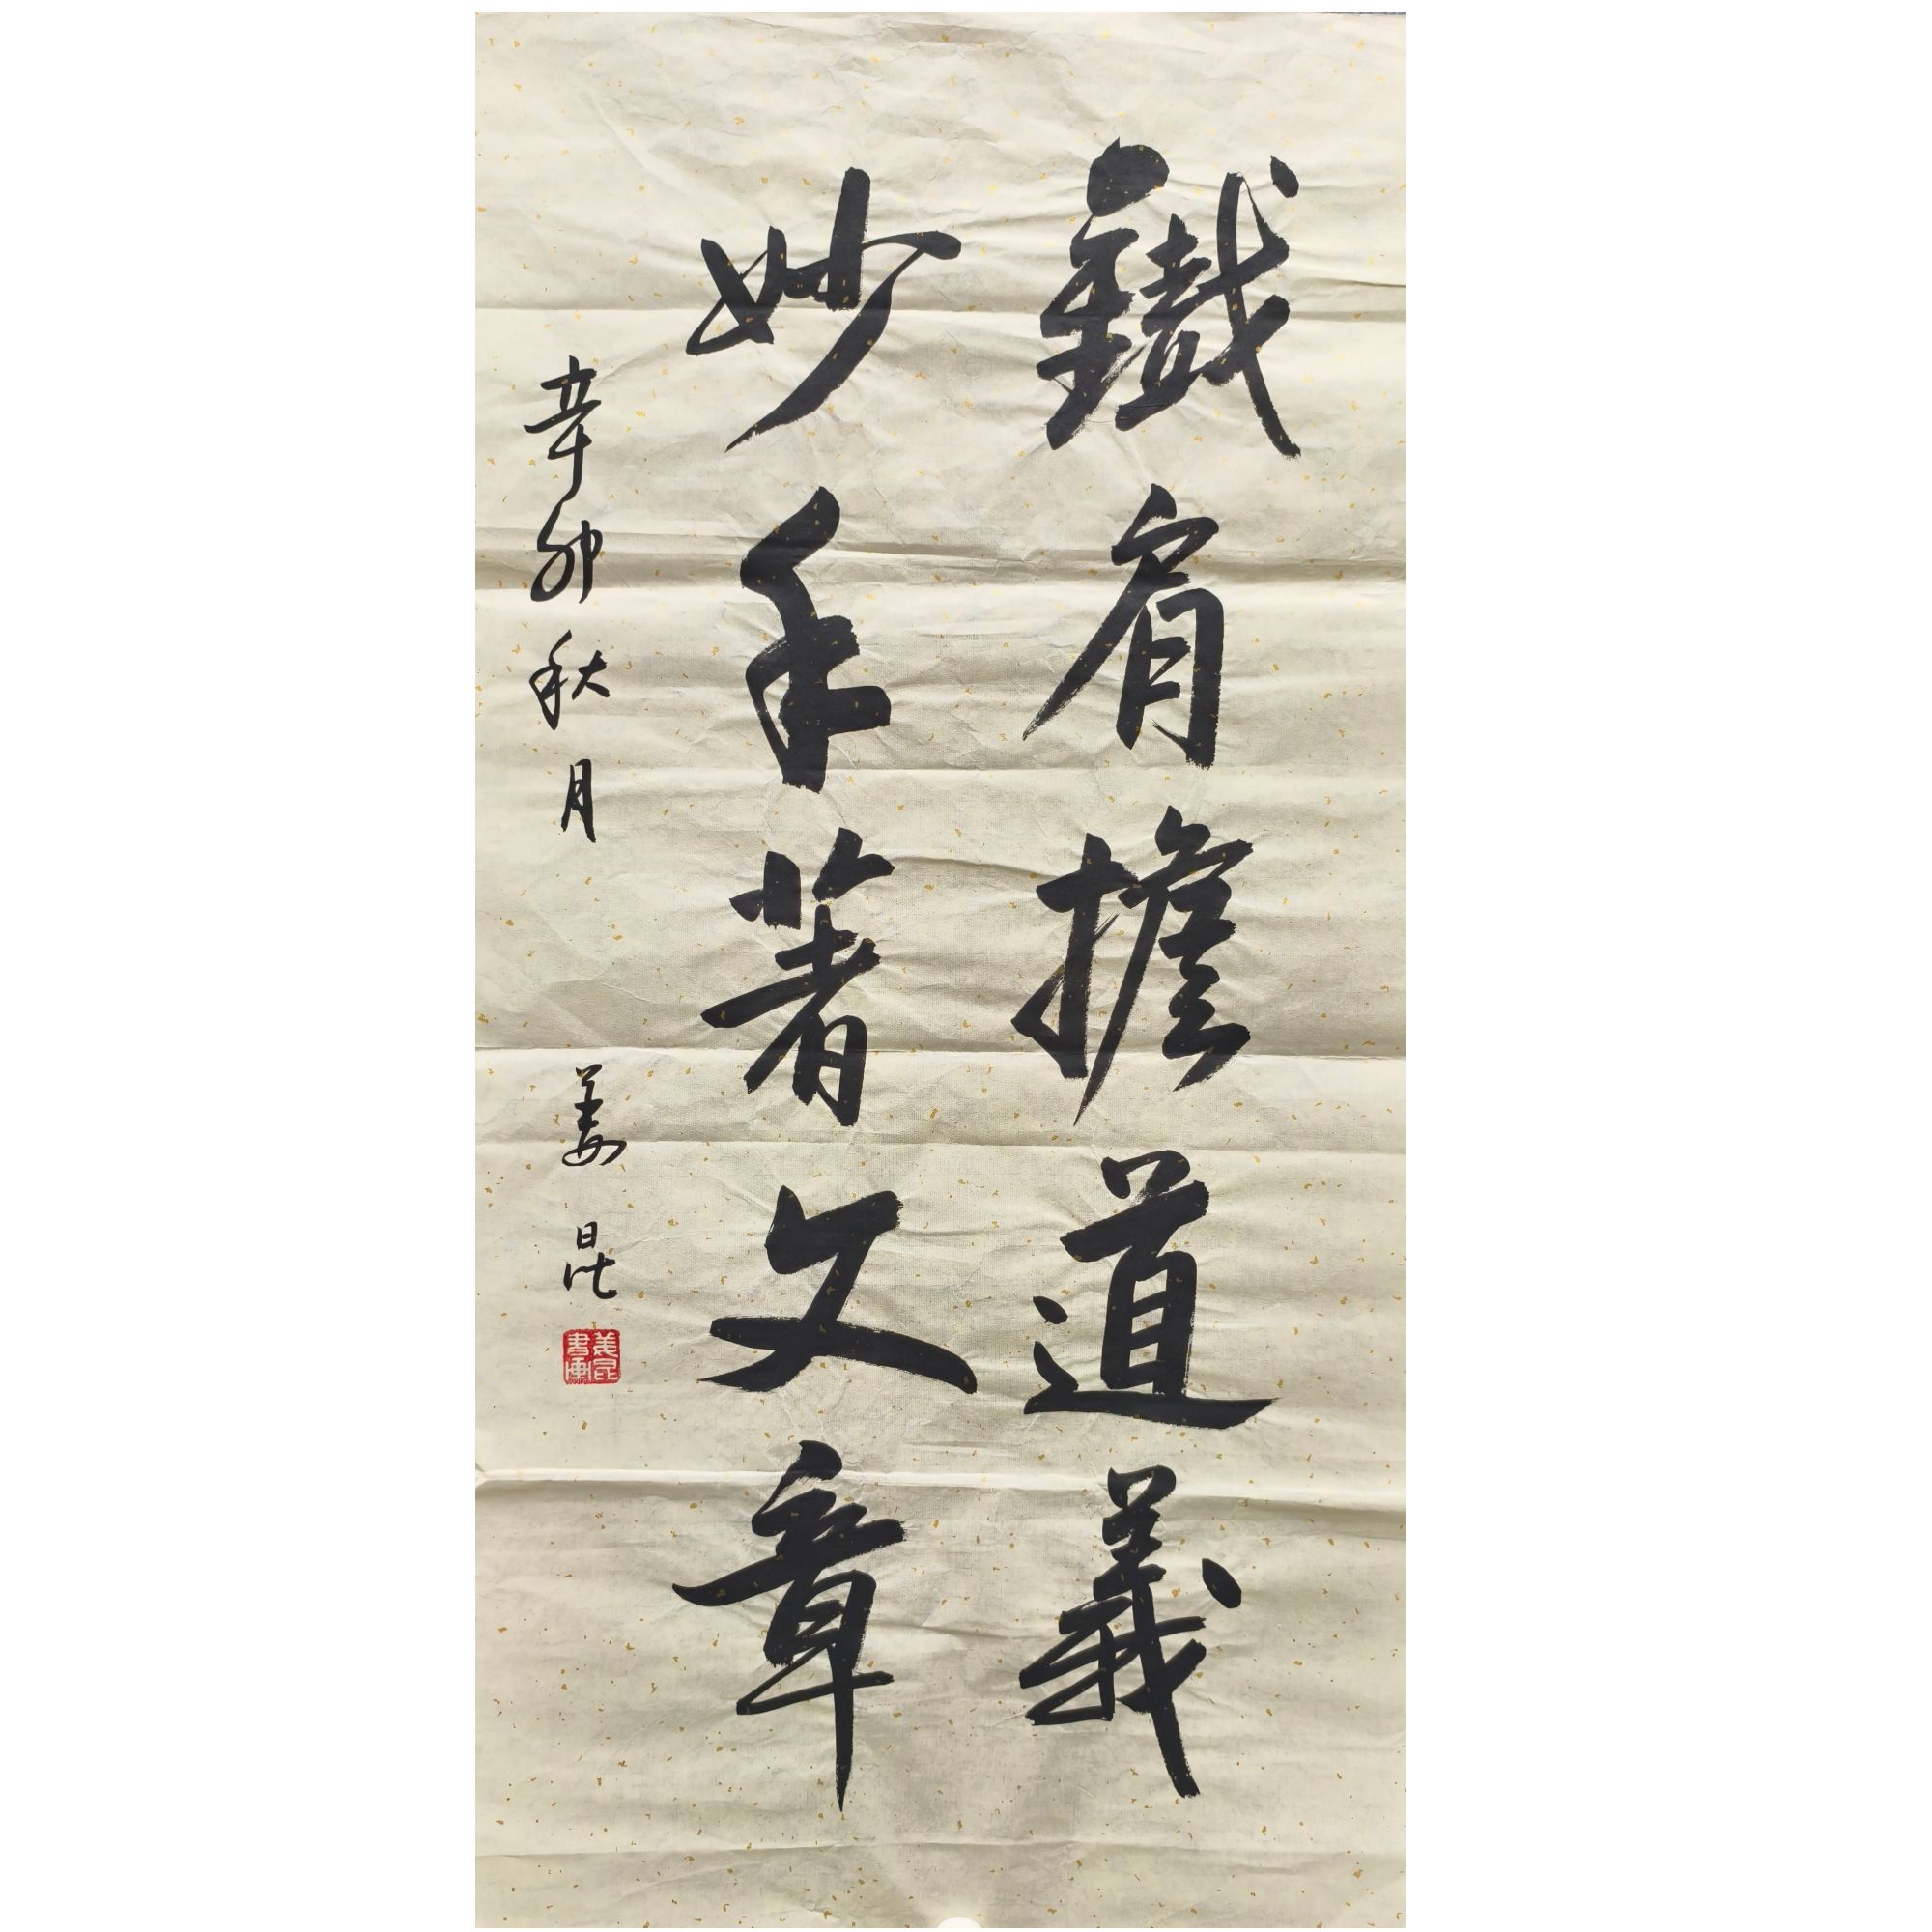 鐵肩擔道義
妙手著文章
辛卯秋月 姜昆
姜昆書畫